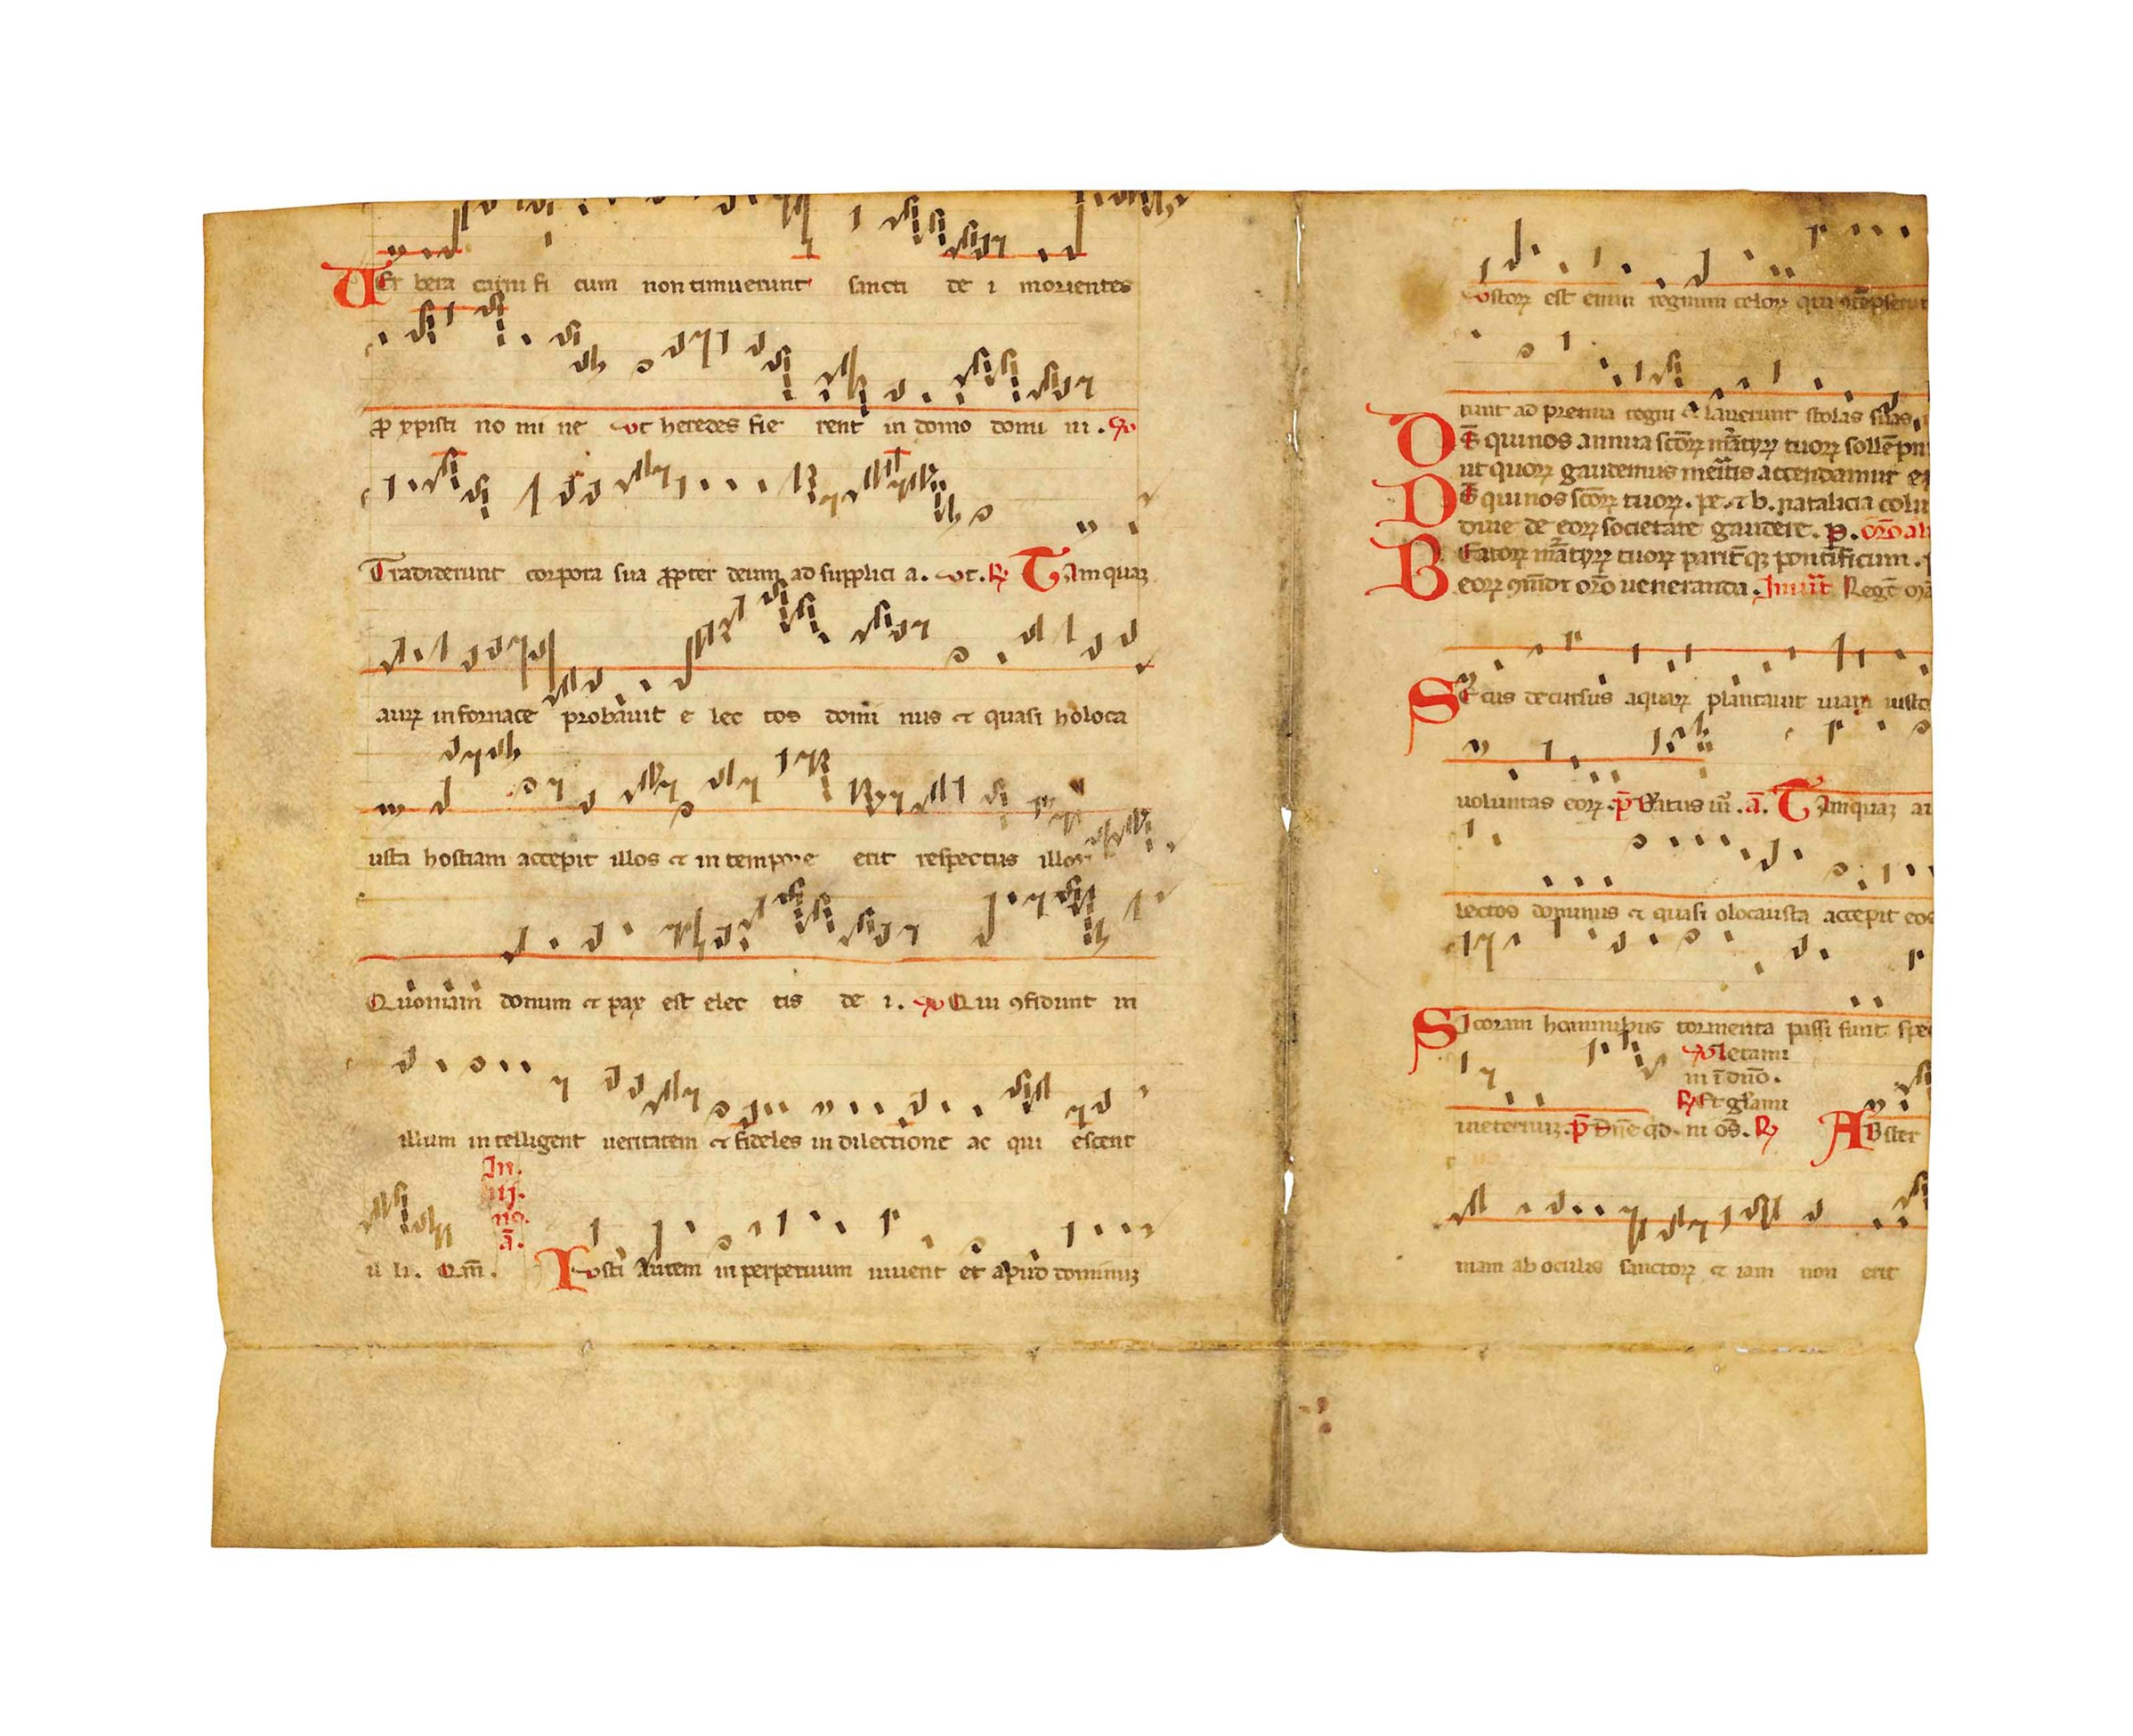 Uer bera carni fi cum non timuerunt sancti de i morientes
ꝓ xpisti no mi ne ut heredes fie rent in domo domi ni . ℣
Tradiderunt corpora sua ꝓpter deum ad supplici a . ut . ℟ Tamquaꝫ
auꝝ in fornace probauit e lec tos domi nus ⁊ quasi holoca
usta hostiam accepit illos ⁊ in tempore erit respectus illoꝝ
Quoniam donum ⁊ pax est elec tis de i . ℣ Qui ꝯfidunt in
illum intelligent ueritatem ⁊ fideles in dilectione ac qui escent
In .
iij .
no .
ā .
il li . Qm̄ . Iusti autem in perpetuum uiuent et apud dominuꝫ
uostoꝝ est enim regnum celoꝝ qui ꝯtēpserunt
runt ad premia regni ⁊ lauerunt stolas suas .
DE qui nos annua sc̄oꝝ mr̄tyꝝ tuoꝝ sollēpn
ut quoꝝ gaudemus meritis accendamur ex
DS̄ qui nos sc̄oꝝ tuoꝝ . pe . ⁊ b . natalicia colu
diuie de eoꝝ societate gaudere . p . oro ali
BEatoꝝ mr̄tyꝝ tuoꝝ parit̄qꝫ pontificum .
eoꝝ ꝯmdt or̄o ueneranda . Inuit̄ Regē
SEcus decursus aquaꝝ plantauit uiam iusto
uoluntas eoꝝ . p̄ Btus uir̄ . ā . Tamquaꝫ au
lectos dominus ⁊ quasi olocausta accepit eos
SI coram hominibus tormenta passi sunt spe
℣ letami
ni ī dn̄o .
℟ Et gl̄ami
in eternuꝫ . p̄ Dn̄e qd . ni os̄ . ℟ ABster
mam ab oculis sanctoꝝ ⁊ iam non erit